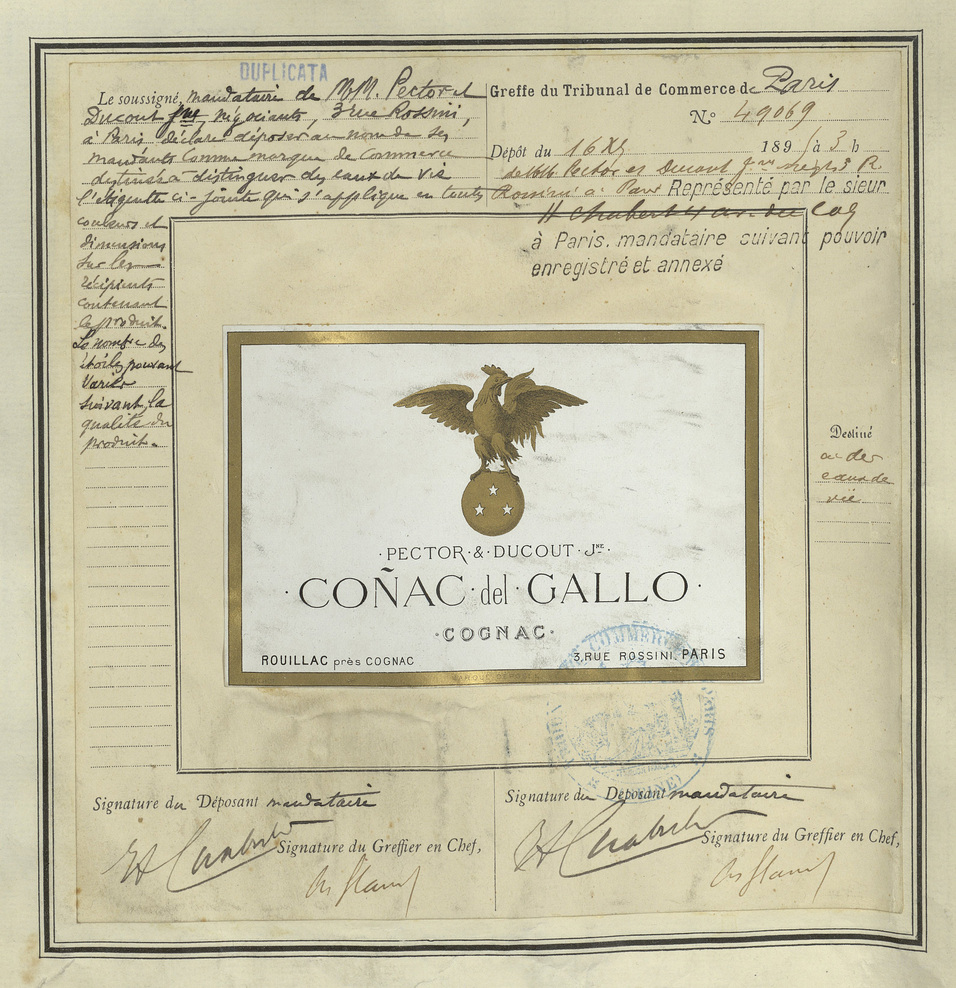 DUPLICATA
Le soussigné, mandataire de MM. Pector et
Ducout Jne, négociants, 3 rue Rossini,
à Paris déclare déposer au nom de ses
mandants comme marque de commerce
destinée à distinguer des eaux de vie
l'étiquette ci-jointe qui s'applique en toutes
couleurs et
dimensions
sur les
récipients
contenant
le produit.
Le nombre des
étoiles pouvant
varier
suivant la
qualité du
produit.
Greffe du Tribunal de Commerce de Paris
N° 49069
Dépôt du 16 Xbre 189 à 3 h
Pector et Ducout Jne négts R.
Rossini à Paris Représenté par le sieur
H Chabert
à Paris, mandataire suivant pouvoir
enregistré et annexé
·PECTOR·&·DUCOUT·JNE·
·COÑAC·del·GALLO·
·COGNAC·
ROUILLAC près COGNAC
3, RUE ROSSINI, PARIS
MARQUE DÉPOSÉE
Destiné
à des
eaux de
vie
Signature du Déposant mandataire
Signature du Greffier en Chef,
Signature du Déposant mandataire
Signature du Greffier en Chef,